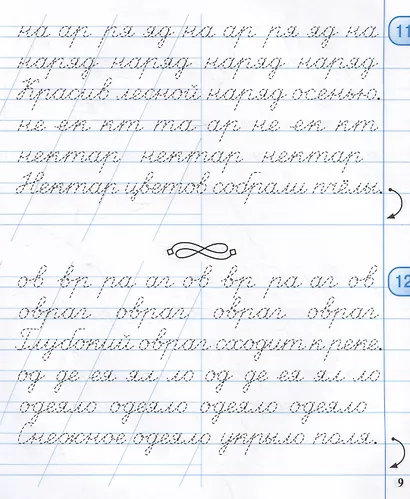 на ар ря яд на ар ря яд на
11
наряд наряд наряд наряд
Красив лесной наряд осенью.
не ек кт та ар не ек кт
нектар нектар нектар
Нектар цветов собрали пчёлы.
ов вр ра аг ов вр ра аг ов
12
овраг овраг овраг овраг
Глубокий овраг сходит к реке.
од де ея ял ло од де ея ял ло
одеяло одеяло одеяло одеяло
Снежное одеяло укрыло поля.
9